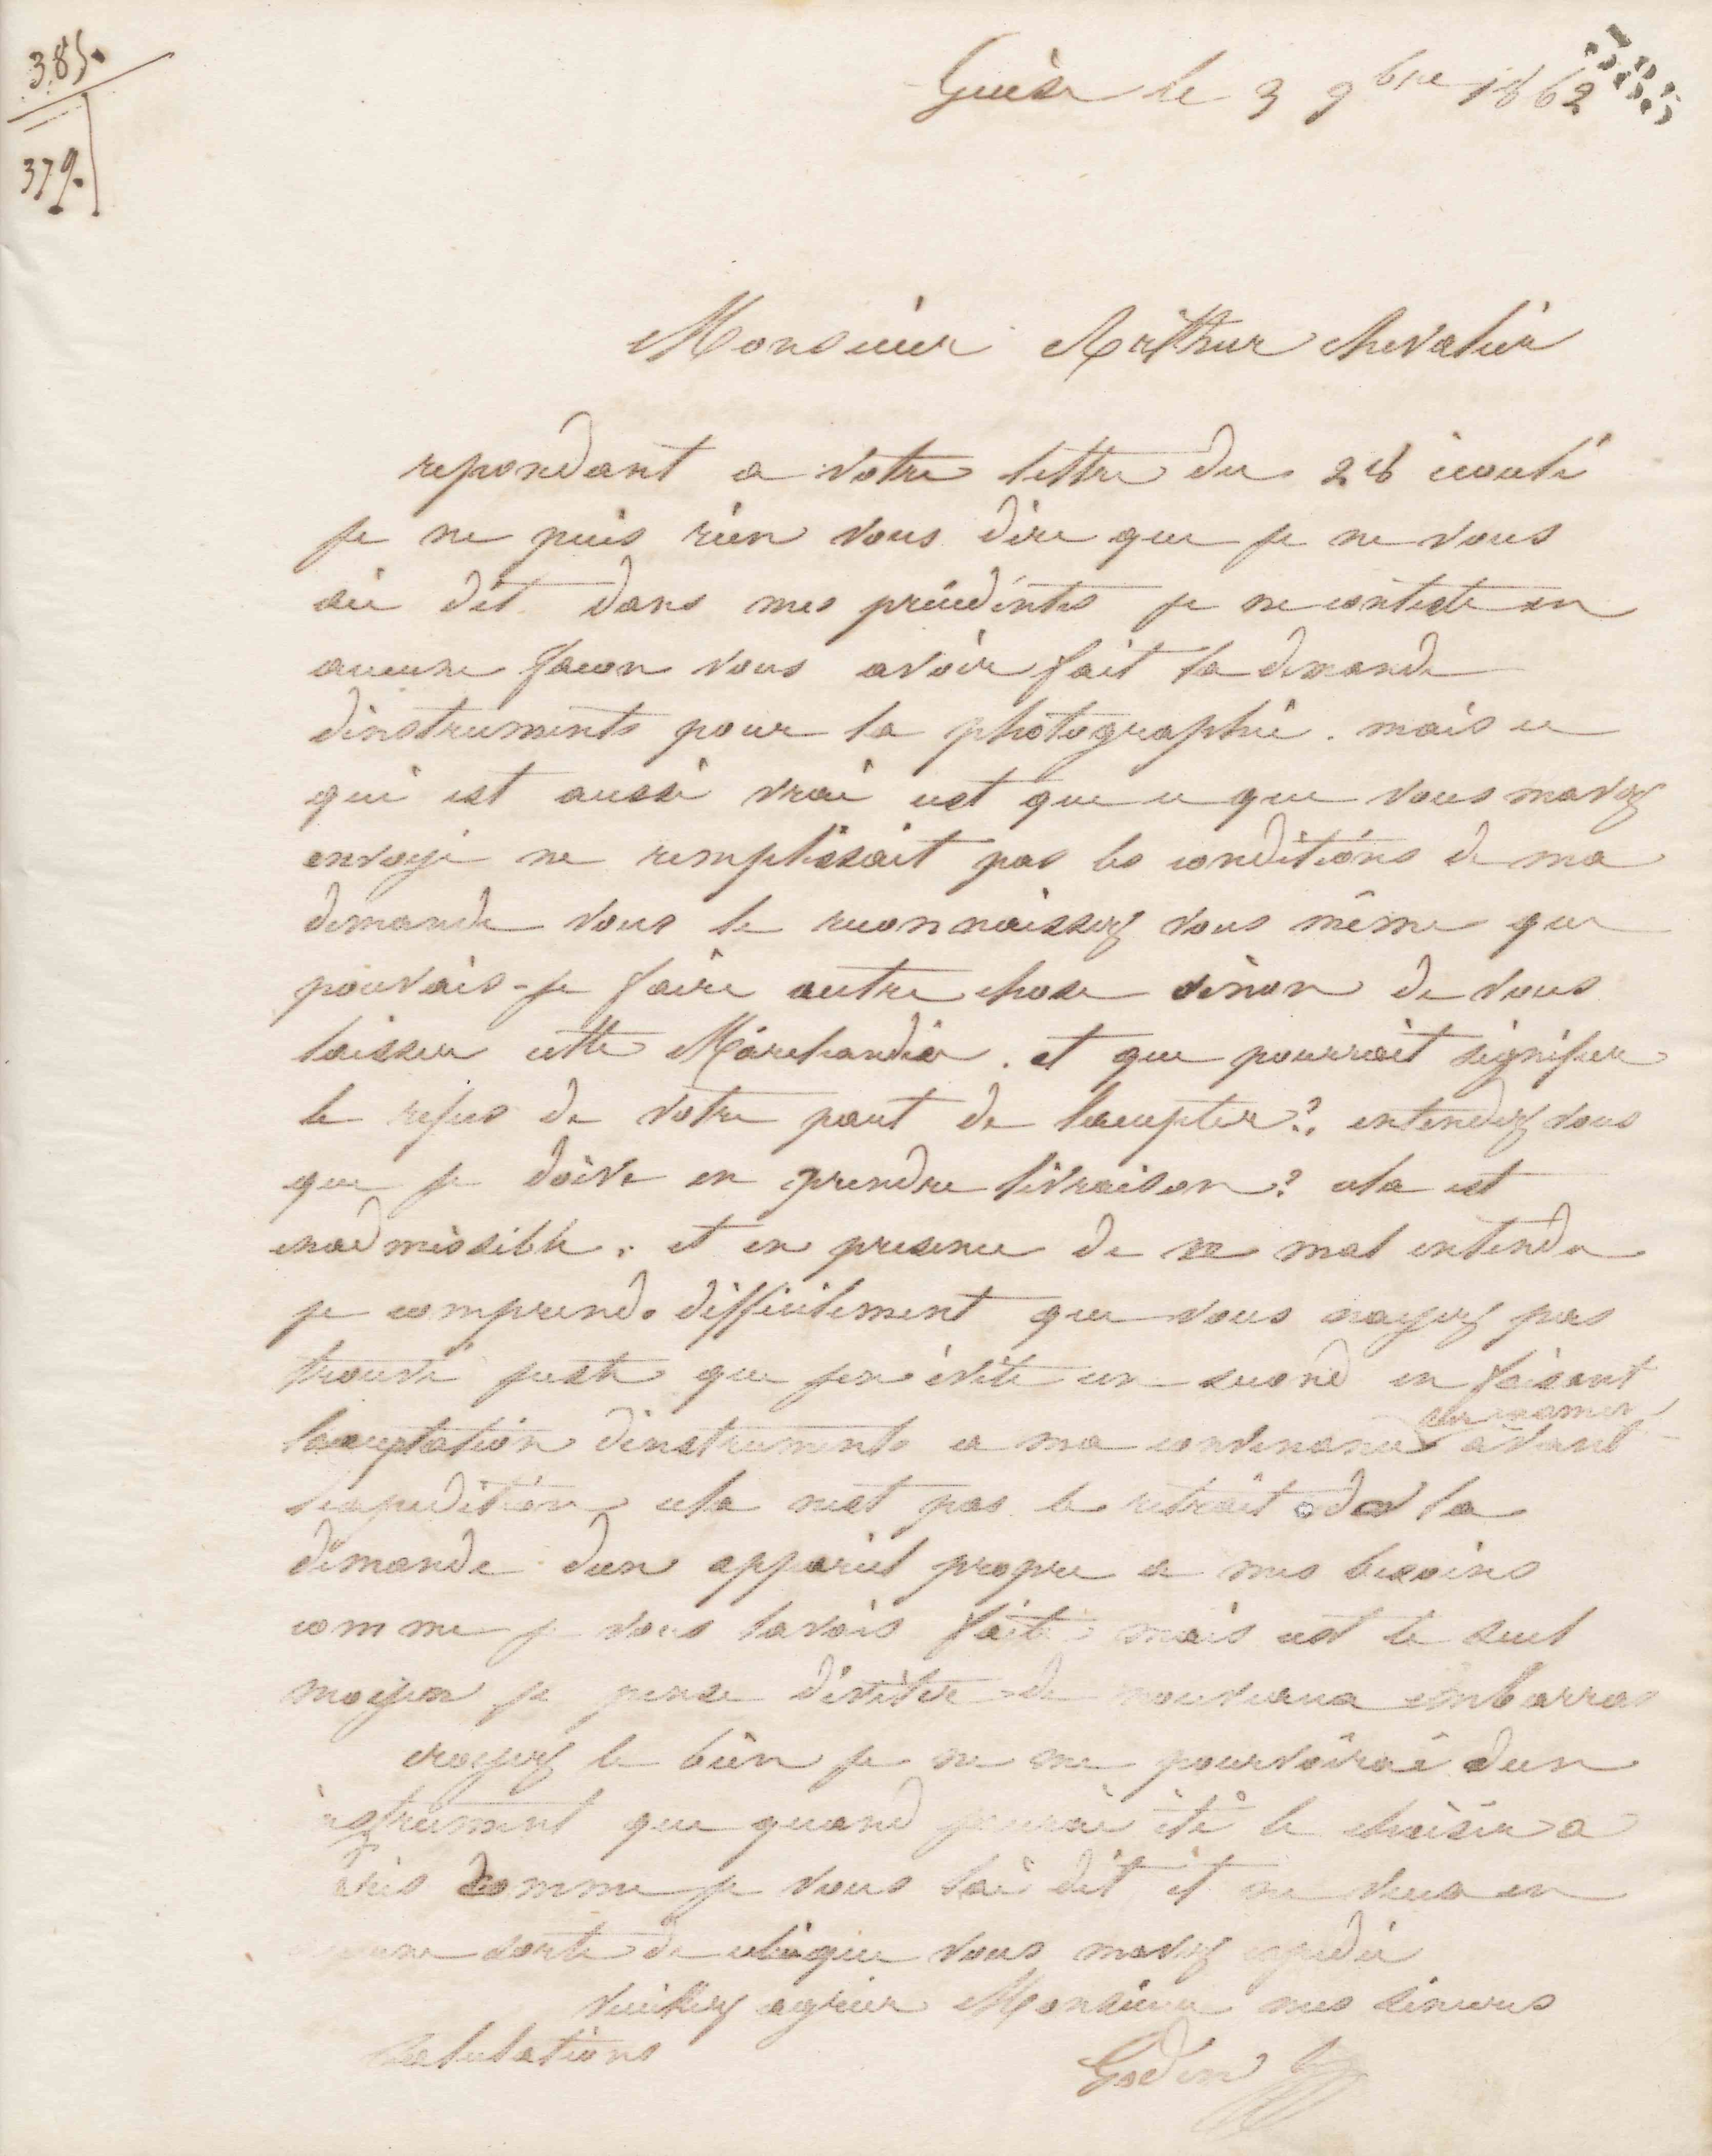 385.
379.
Guise le 3 9bre 1862
Monsieur Arthur Chevalier
repondant a votre lettre du 28 écoulé
je ne puis rien vous dire que je ne vous
ai dit dans mes précédentes je ne conteste en
aucune facon vous avoir fait la demande
dinstruments pour la photographie. mais ce
qui est aussi vrai cest que ce que vous mavez
envoyé ne remplissait pas les conditions de ma
demande vous le reconnaissez vous même que
pouvais-je faire autre chose sinon de vous
laisser cette Marchandise. et que pourrait signifier
le refus de votre part de laccepter? entendez vous
que je doive en prendre livraison? cela est
inadmissible. et en presence de ce mal entendu
je comprends difficilement que vous nayez pas
trouvé juste que jen évite un second en faisant
lacceptation dinstruments a ma convenance avant
lexpedition cela nest pas le retrait de la
demande dun appareil propre a mes besoins
comme je vous lavais faite mais cest le seul
moyen je pense déviter de nouveaux embarras
croyez le bien je ne me pourvoirai dun
instrument que quand jaurai été le choisir a
Paris comme je vous lai dit et ne veux en
aucune sorte de celui que vous mavez expedié
Veuillez agréer Monsieur mes sinceres
salutations
Godin